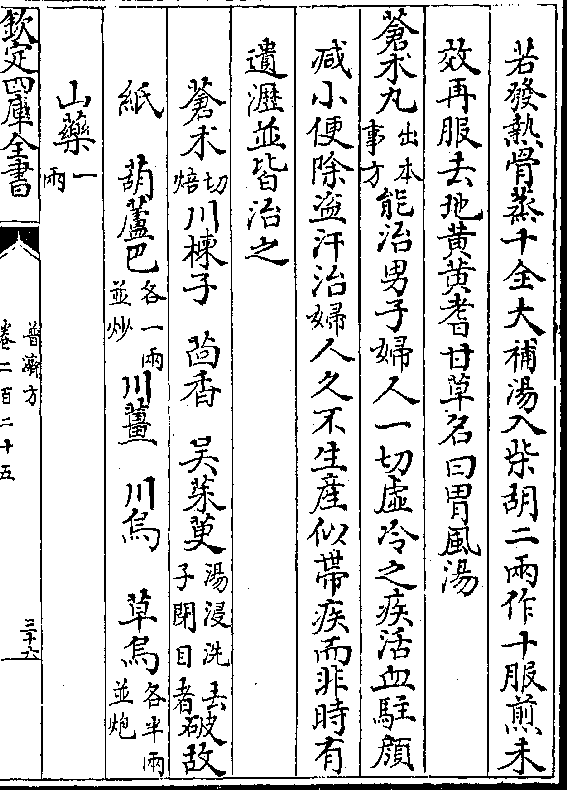 若發熱骨蒸十全大補湯入柴胡二兩作十服煎未
效再服去地黄黄耆甘草名曰胃風湯
蒼术丸出本事方能治男子婦人一切虛冷之疾活血駐顔
减小便除盗汗治婦人久不生産似帶疾而非時有
遺瀝並皆治之
蒼术切焙 川楝子 茴香 吴茱萸湯浸洗去子閉目者 破故
紙 葫蘆巴各一兩並炒 川薑 川烏 草烏各半兩並炮
山藥一兩
欽定四庫全書
普濟方
卷二百二十五
三十六